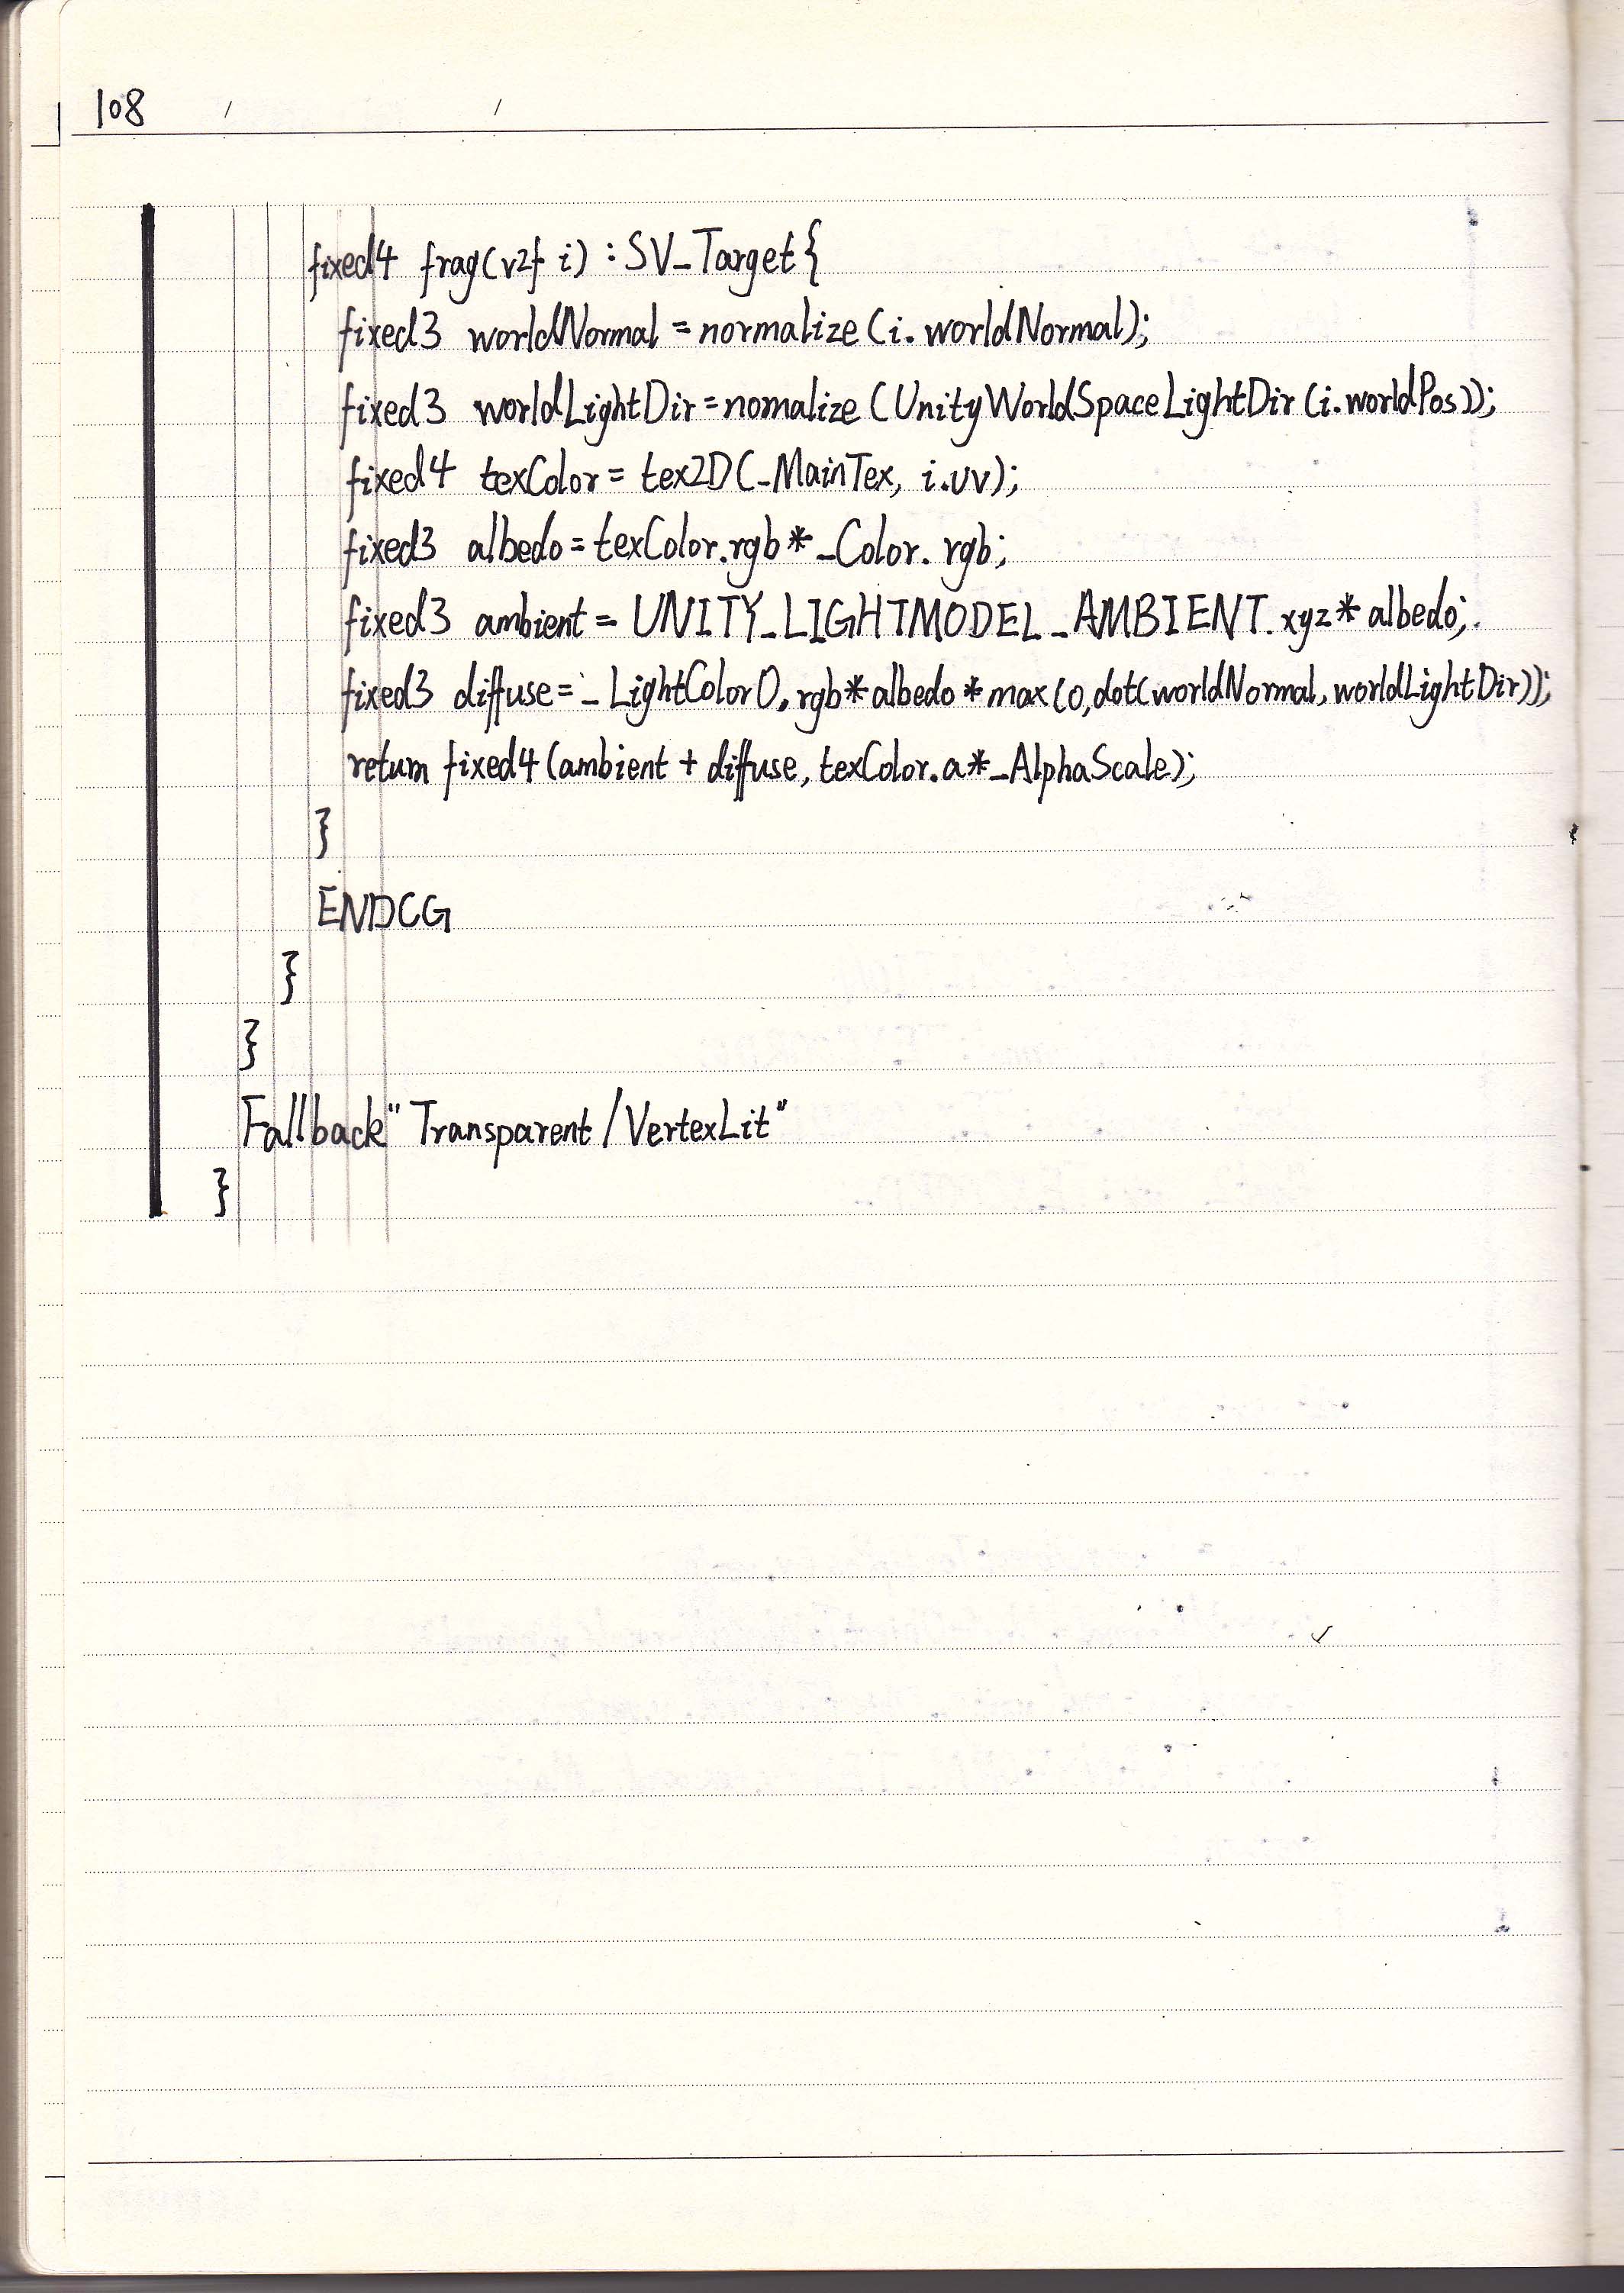 108
fixed4 frag(v2f i) : SV_Target{
fixed3 worldNormal = normalize(i.worldNormal);
fixed3 worldLightDir = nomalize(UnityWorldSpaceLightDir(i.worldPos));
fixed4 texColor = tex2D(_MainTex, i.uv);
fixed3 albedo = texColor.rgb * _Color.rgb;
fixed3 ambient = UNITY_LIGHTMODEL_AMBIENT.xyz * albedo;
fixed3 diffuse = _LightColor0.rgb * albedo * max(0, dot(worldNormal, worldLightDir));
return fixed4(ambient + diffuse, texColor.a * _AlphaScale);
}
ENDCG
}
}
Fallback "Transparent/VertexLit"
}